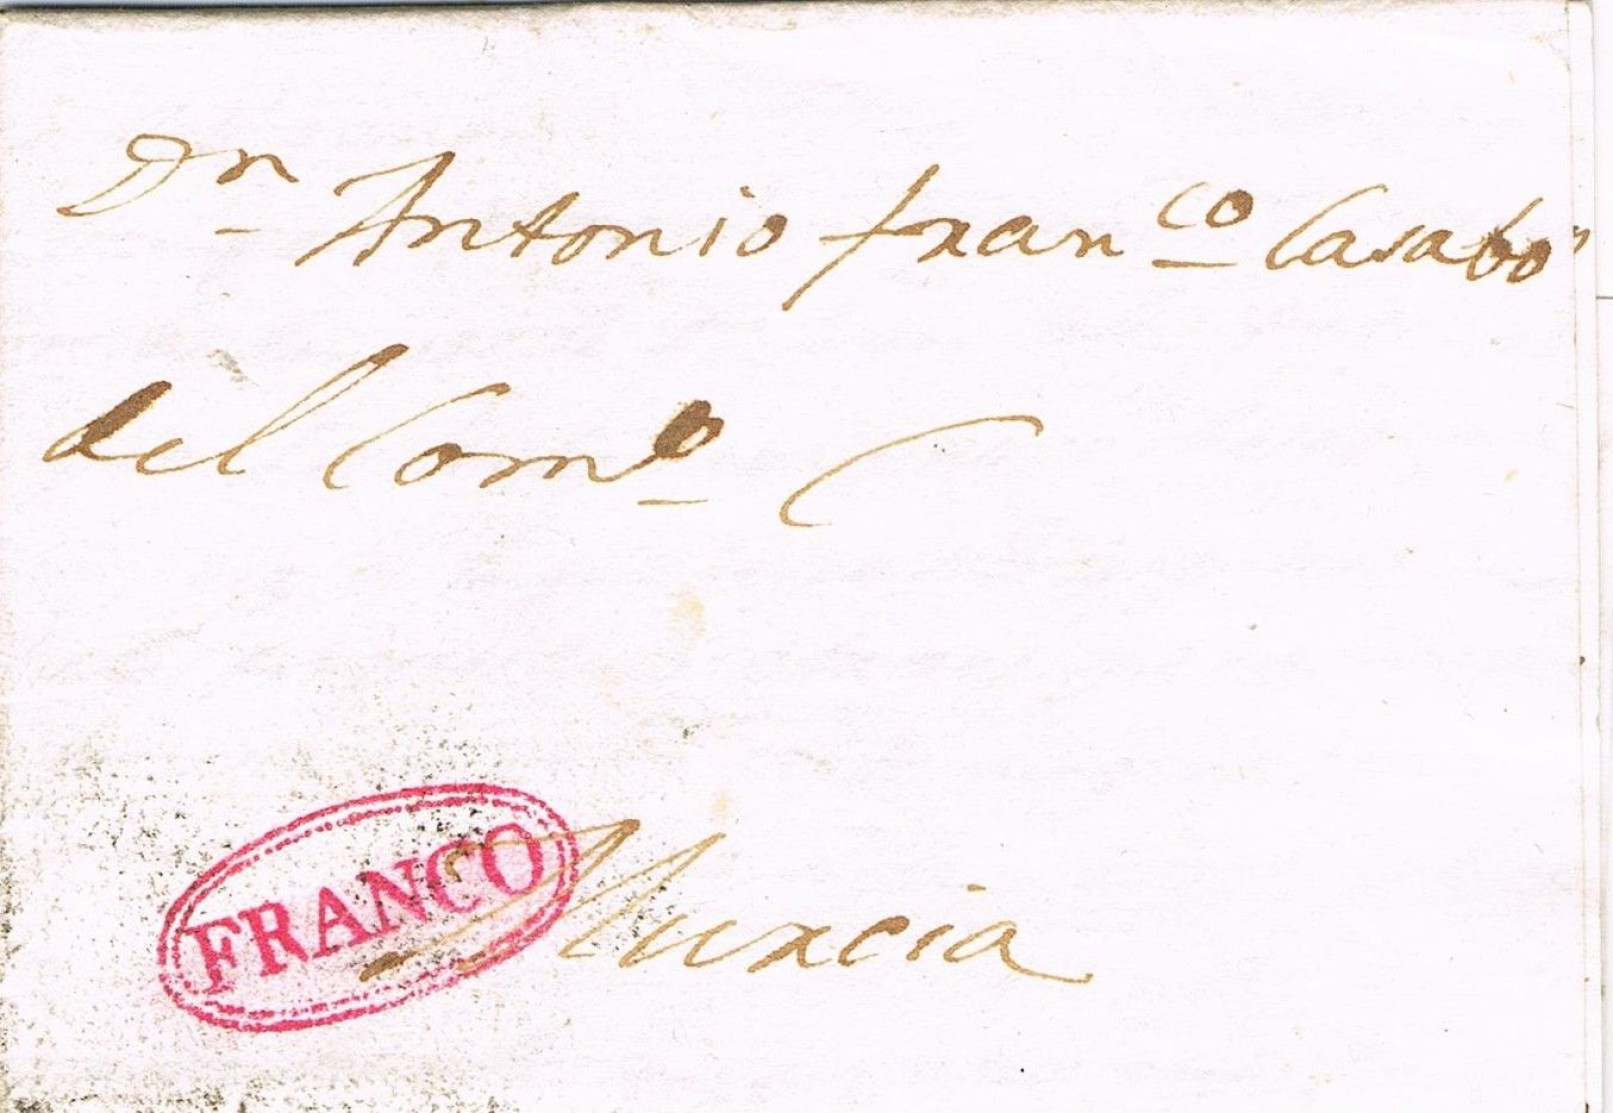 Dn Antonio franco Casabon
del Como
FRANCO
Murcia